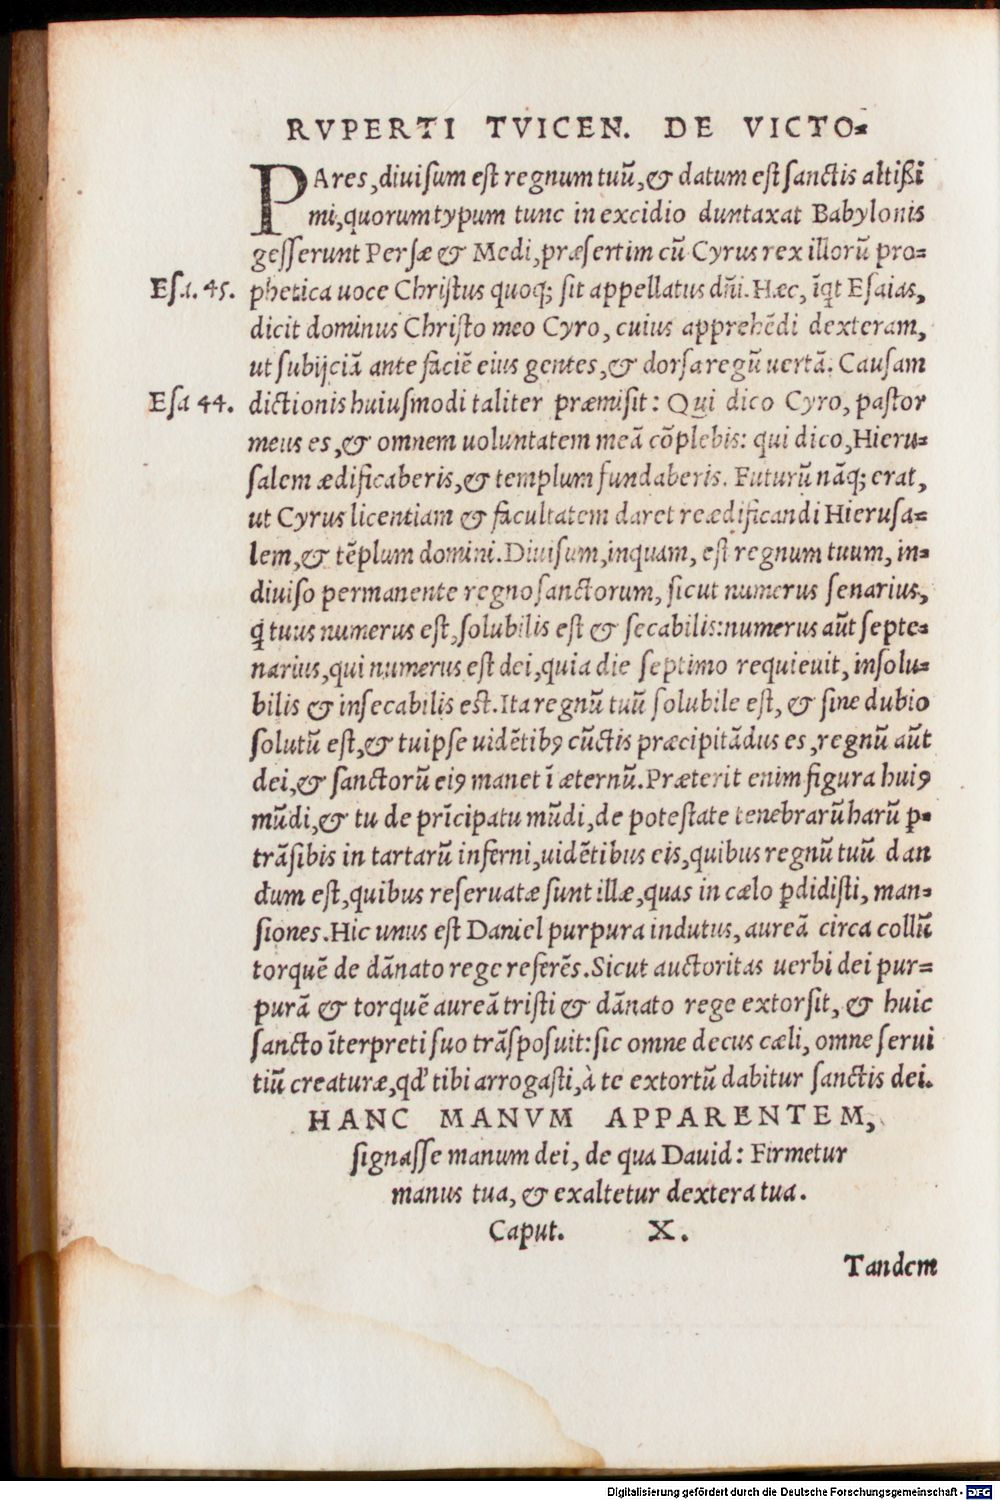 RVPERTI TVICEN. DE VICTO=
PAres, diuisum est regnum tuũ, & datum est sanctis altißi
mi, quorum typum tunc in excidio duntaxat Babylonis
gesserunt Persæ & Medi, præsertim cũ Cyrus rex illorũ pro=
Esa. 45. phetica uoce Christus quoq; sit appellatus dñi. Hæc, ĩqt Esaias,
dicit dominus Christo meo Cyro, cuius apprehẽdi dexteram,
ut subijciã ante faciẽ eius gentes, & dorsa regũ uertã. Causam
Esa 44. dictionis huiusmodi taliter præmisit: Qui dico Cyro, pastor
meus es, & omnem uoluntatem meã cõplebis: qui dico, Hieru=
salem ædificaberis, & templum fundaberis. Futurũ nãq; erat,
ut Cyrus licentiam & facultatem daret reædificandi Hierusa=
lem, & tẽplum domini. Diuisum, inquam, est regnum tuum, in=
diuiso permanente regno sanctorum, sicut numerus senarius,
q̃ tuus numerus est, solubilis est & secabilis: numerus aũt septe=
narius, qui numerus est dei, quia die septimo requieuit, insolu=
bilis & insecabilis est. Ita regnũ tuũ solubile est, & sine dubio
solutũ est, & tu ipse uidẽtibꝯ cũctis præcipitãdus es, regnũ aũt
dei, & sanctorũ eiꝯ manet ĩ æternũ. Præterit enim figura huiꝯ
mũdi, & tu de prĩcipatu mũdi, de potestate tenebrarũ harũ ꝑ=
trãsibis in tartarũ inferni, uidẽtibus eis, quibus regnũ tuũ dan
dum est, quibus reseruatæ sunt illæ, quas in cælo ꝑdidisti, man=
siones. Hic unus est Daniel purpura indutus, aureã circa collũ
torquẽ de dãnato rege referẽs. Sicut auctoritas uerbi dei pur=
purã & torquẽ aureã tristi & dãnato rege extorsit, & huic
sancto ĩterpreti suo trãsposuit: sic omne decus cæli, omne serui
tiũ creaturæ, qď tibi arrogasti, à te extortũ dabitur sanctis dei.
HANC MANVM APPARENTEM,
signasse manum dei, de qua Dauid: Firmetur
manus tua, & exaltetur dextera tua.
Caput. X.
Tandem
Digitalisierung gefördert durch die Deutsche Forschungsgemeinschaft - DFG